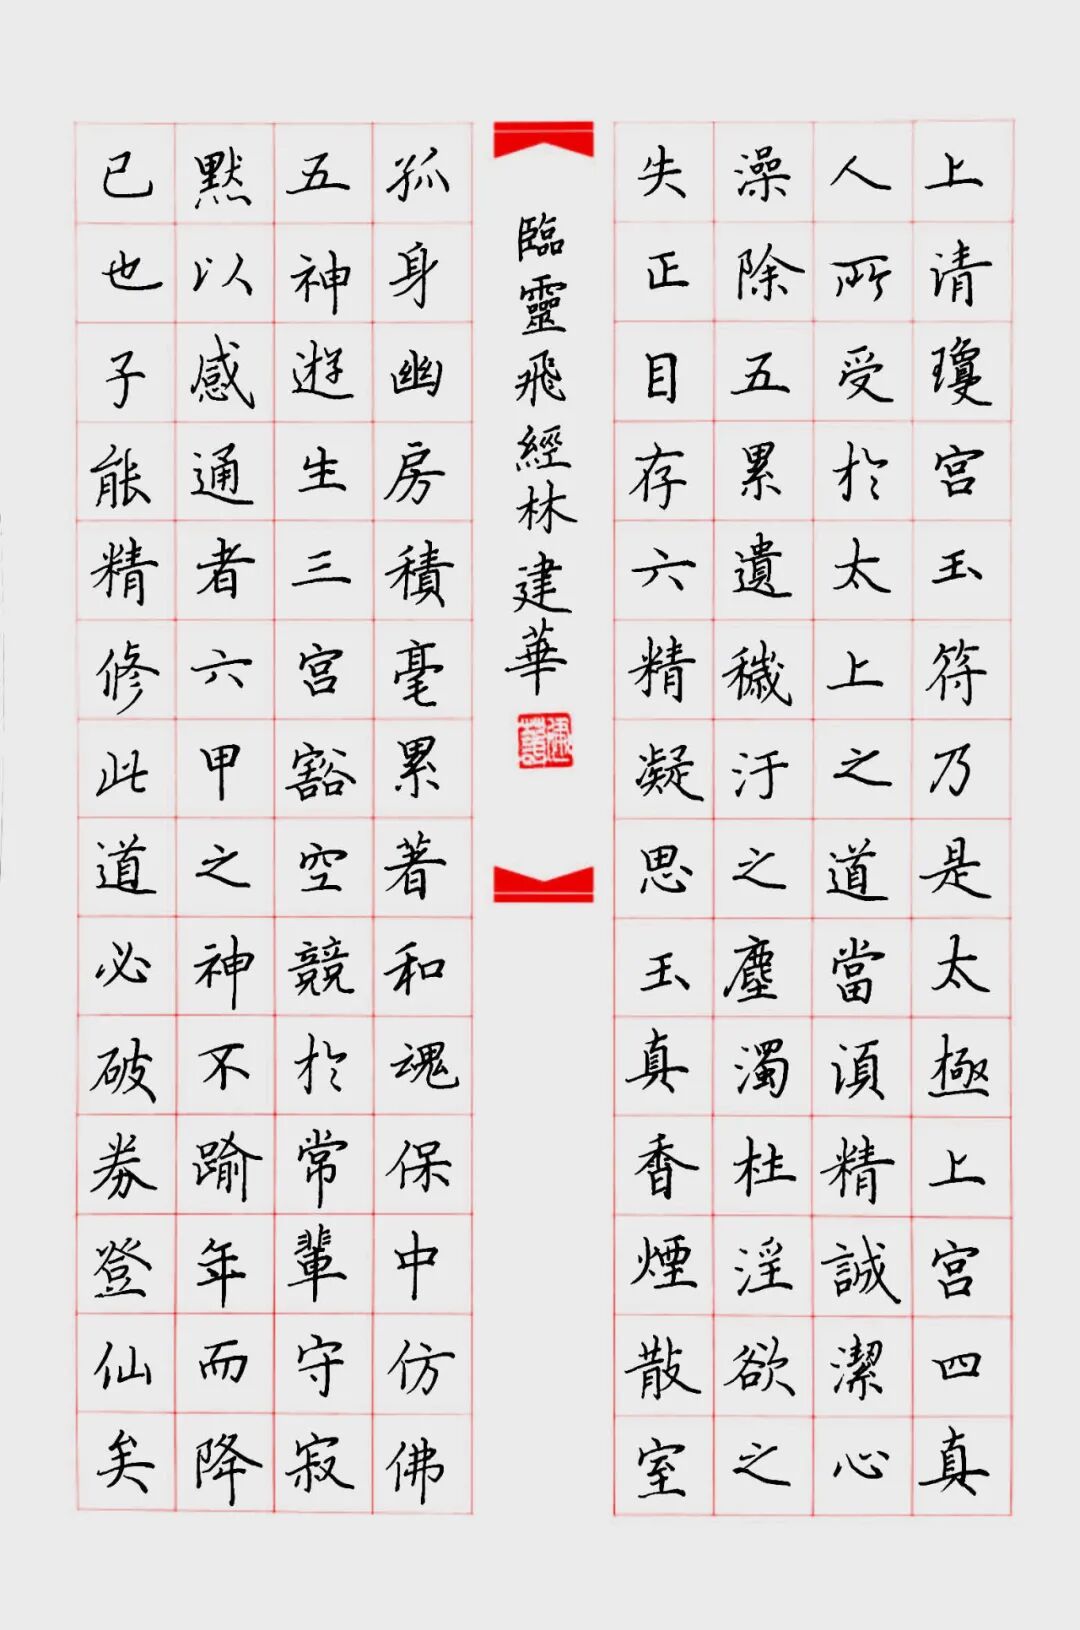 上清瓊宮玉符乃是太極上宮四真
人所受於太上之道當須精誠潔心
澡除五累遺穢汙之塵濁杜淫欲之
失正目存六精凝思玉真香煙散室
孤身幽房積毫累著和魂保中仿佛
五神遊生三宮豁空競於常輩守寂
默以感通者六甲之神不踰年而降
已也子能精修此道必破券登仙矣
臨靈飛經林建華